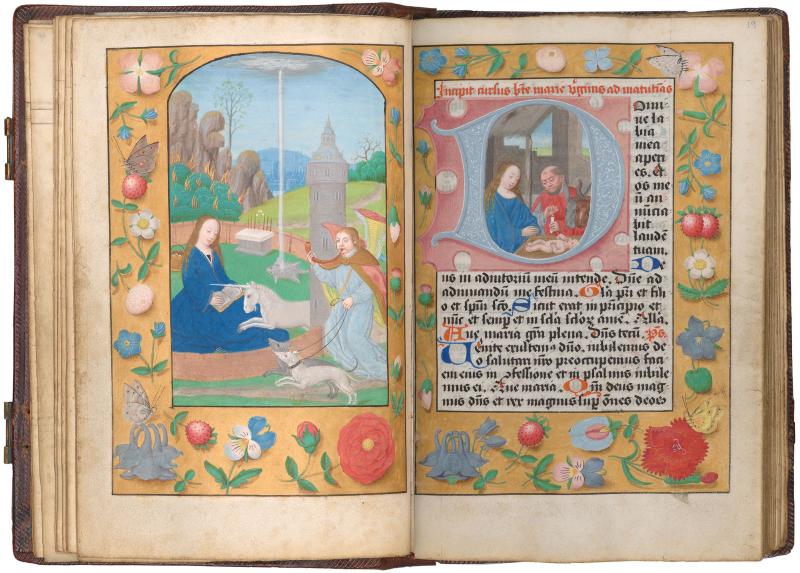 19
Incipit cursus bte marie v̓ginis ad matutinas
Domi
ne la
bia
mea
aperi
es. Et
os me
ū an
nūcia
bit
laudē
tuam.
De
us in adiutoriū meū intende. Dn̄e ad
adiuuandū me festina. Gl̄a pr̄i et fili
o et spūi sc̄o. Sicut erat in prīcipio et
nūc et semp̄ et in sc̄la sc̄lor̄ amē. Alla.
Aue maria gr̄a plena. Dn̄s tecū. p̄s.
Uenite exultem̄ dn̄o. iubilemus de
o salutari nr̄o preocupemus faci
em eius in ꝯfessione et in psalmis iubile
mus ei. Aue maria. Qm̄ deus mag
nus dn̄s et rex magnus sup̄ om̄es deos